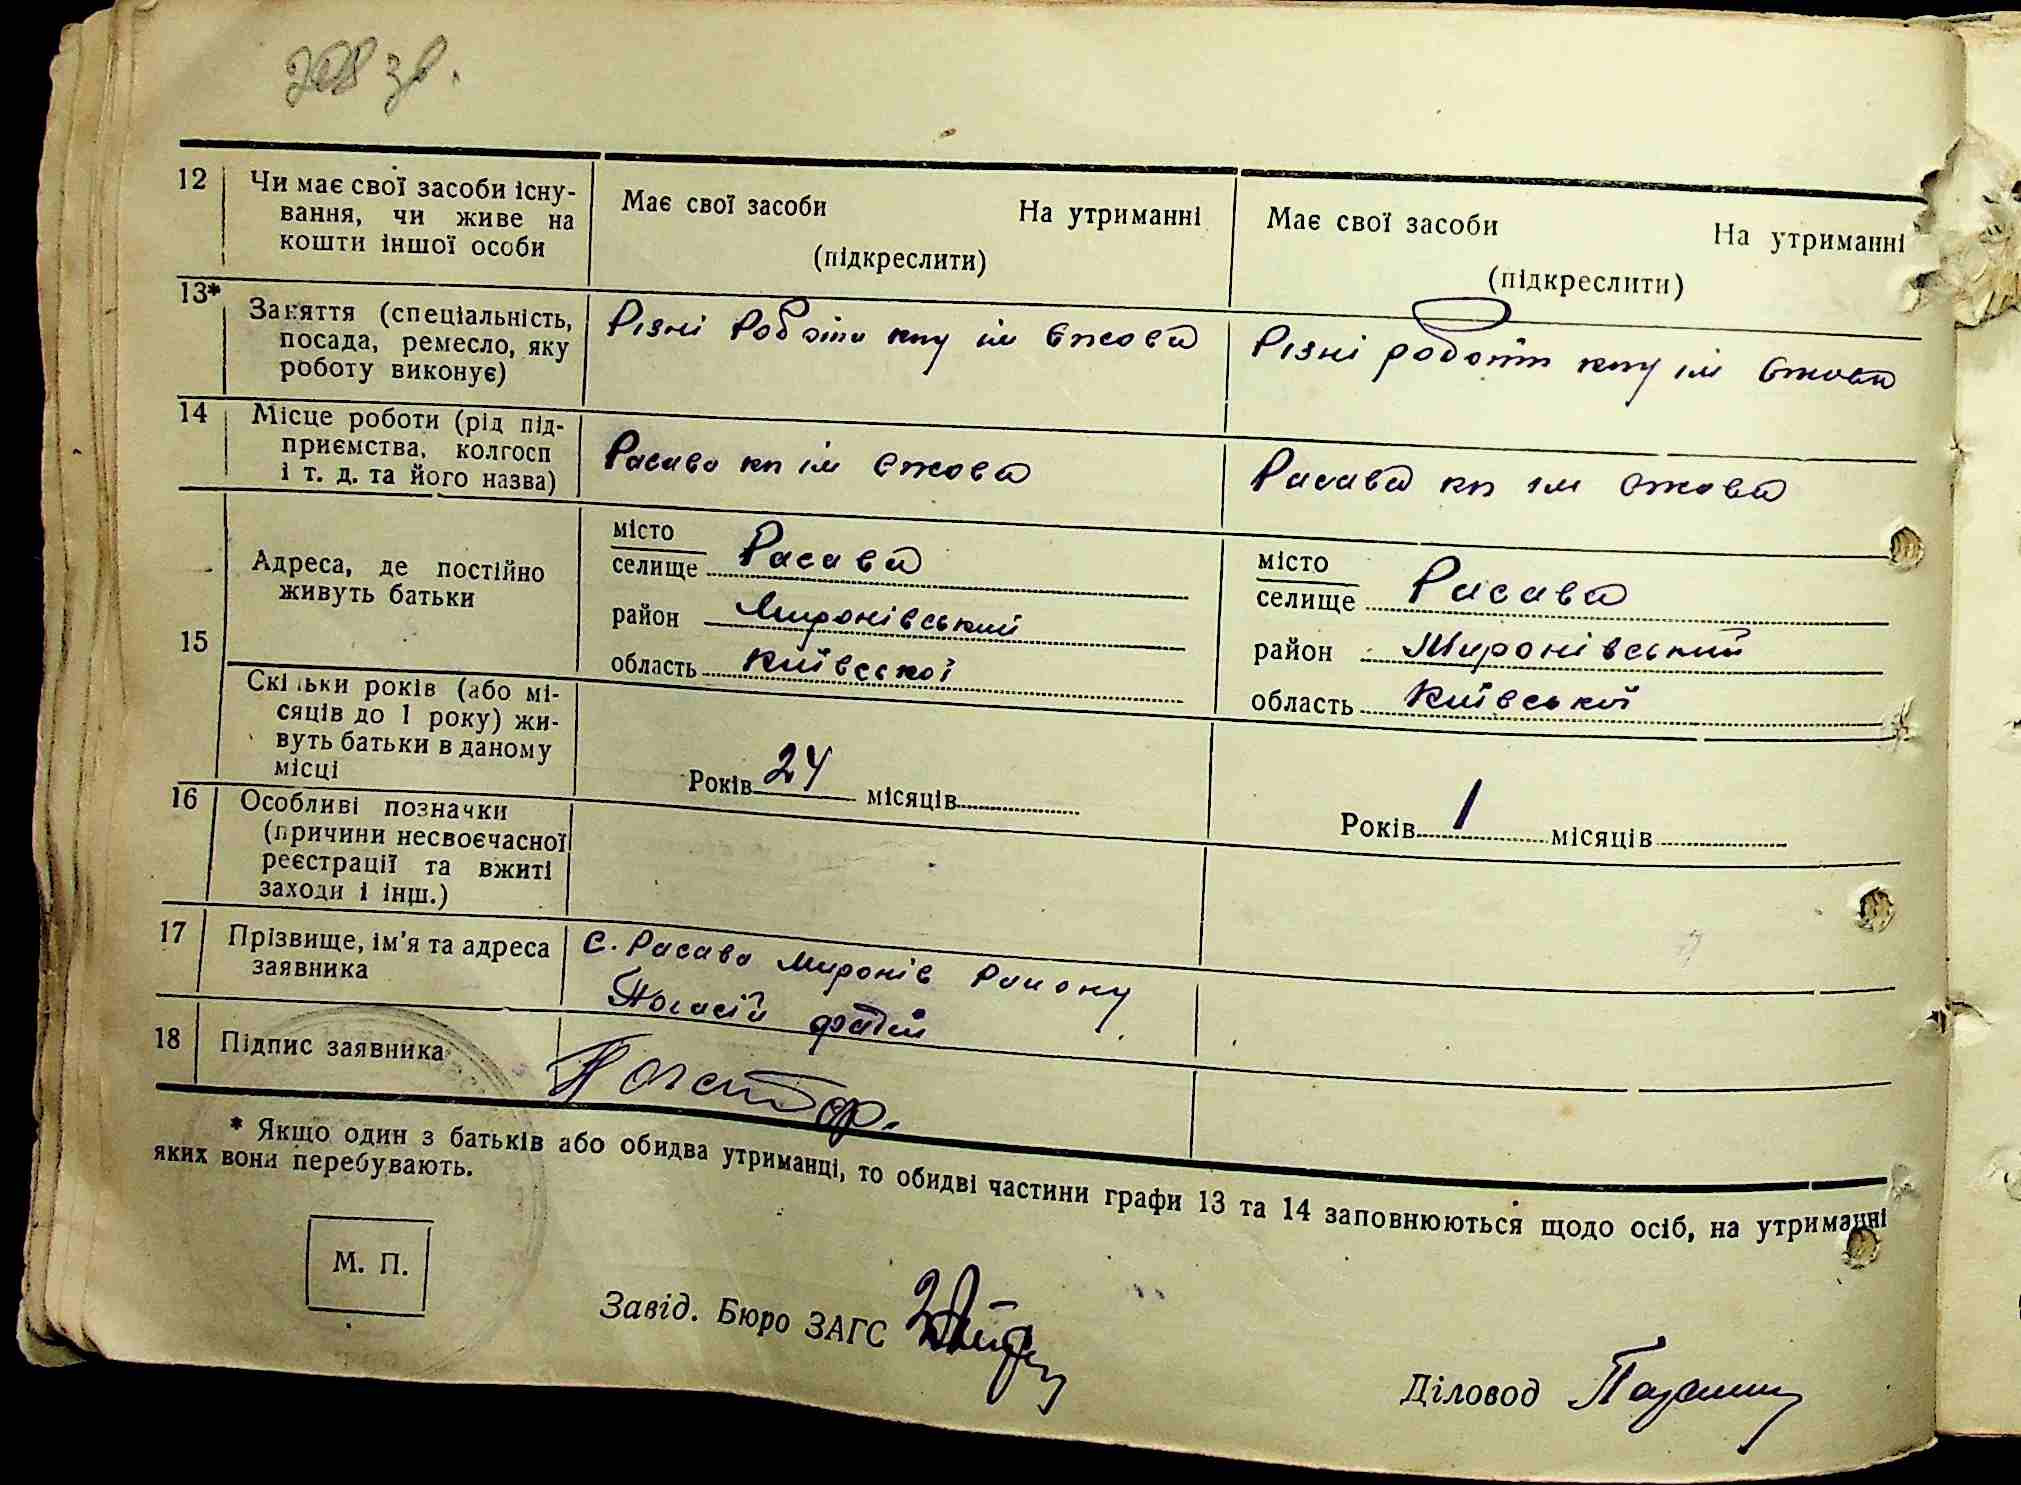 208 зв.
12 Чи має свої засоби існу-
вання, чи живе на
кошти іншої особи
Має свої засоби На утриманні
(підкреслити)
Має свої засоби На утриманні
(підкреслити)
13* Заняття (спеціальність,
посада, ремесло, яку
роботу виконує)
Різні роботи кпу ім Єжова
Різні роботи кпу ім Єжова
14 Місце роботи (рід під-
приємства, колгосп
і т. д. та його назва)
Расава кп ім Єжова
Расава кп ім Єжова
15 Адреса, де постійно
живуть батьки
місто
селище Расава
район Миронівський
область Київської
місто
селище Расава
район Миронівський
область Київської
Скільки років (або мі-
сяців до 1 року) жи-
вуть батьки в даному
місці
Років 24 місяців
Років 1 місяців
16 Особливі позначки
(причини несвоєчасної
реєстрації та вжиті
заходи і інш.)
17 Прізвище, ім'я та адреса
заявника
С. Расава Миронів Району
18 Підпис заявника
* Якщо один з батьків або обидва утриманці, то обидві частини графи 13 та 14 заповнюються щодо осіб, на утриманні
яких вони перебувають.
М. П.
Завід. Бюро ЗАГС
Діловод